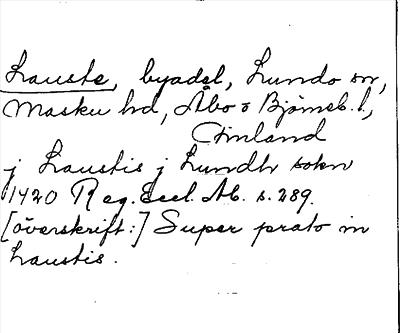 Lauste, byadel, Lundo sn,
Masku hd, Åbo o Björneb. l.,
Finland
j Laustis j Lundh sokn
1420 Reg. Eccl. Ab. s. 289.
[överskrift:] Super prato in
Laustis.